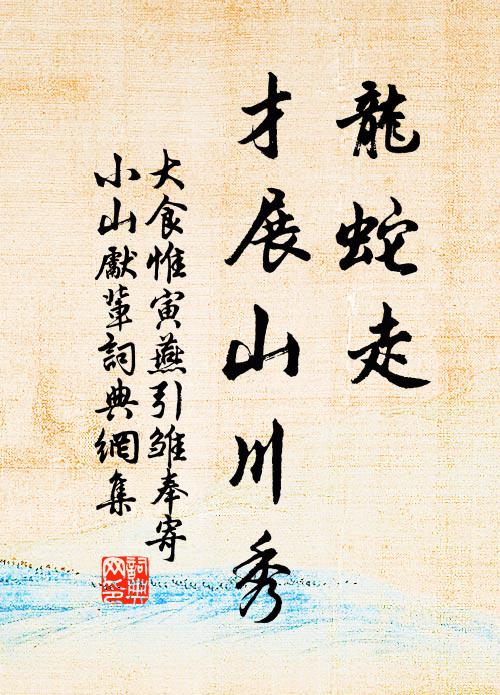 龍蛇走
才展山川秀
大食惟寅燕引雏奉寄
小山獻輩詞典網集
詞典网